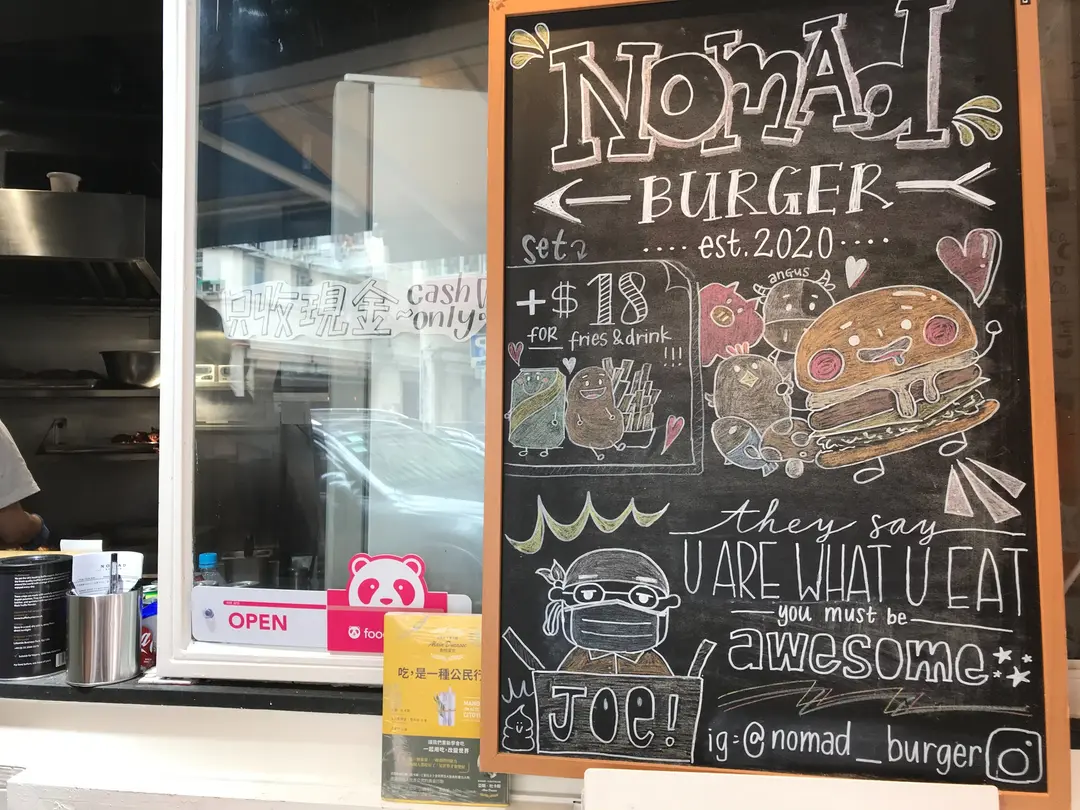 NOMAD
BURGER
est. 2020
set
+$18
FOR fries & drink
!!!
ANGUS
they say
U ARE WHAT U EAT
you must be
awesome
JOE!
ig:@nomad_burger
只收現金~cash
only
OPEN
吃，是一種公民行